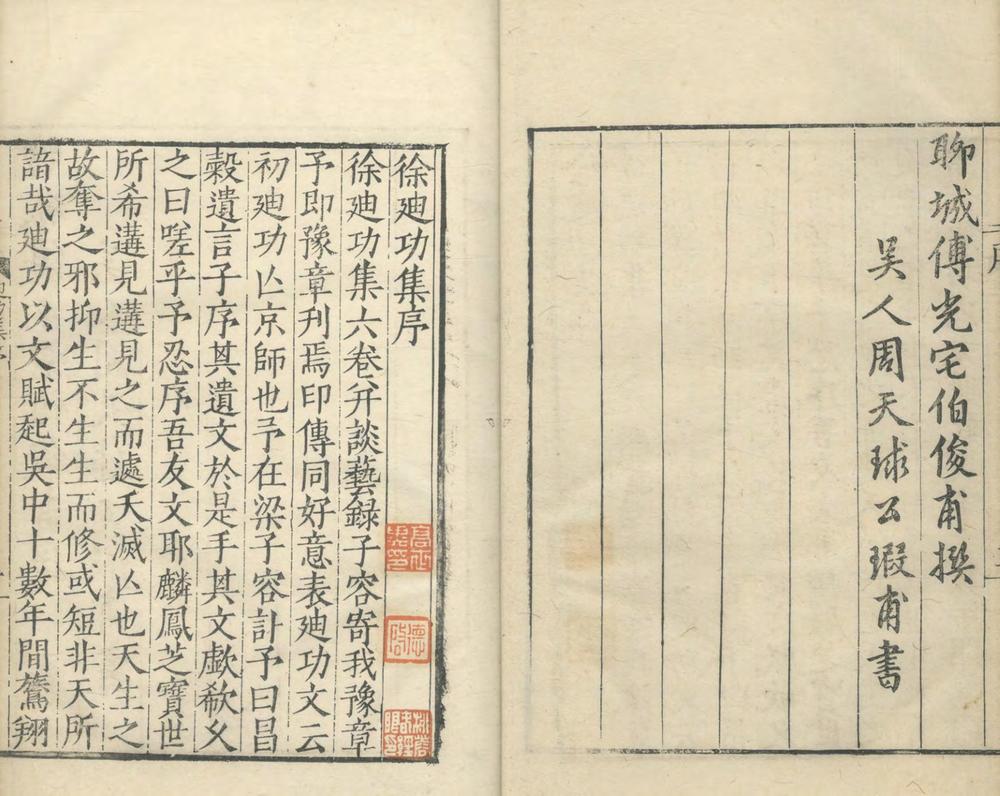 聊城傅光宅伯俊甫撰
吴人周天球公瑕甫書
徐廸功集序
徐廸功集六卷并談藝録子容寄我豫章
予即豫章刋焉印傳同好意表廸功文云
初廸功亾京師也予在梁子容訃予曰昌
糓遺言子序其遺文於是手其文歔欷久
之曰嗟乎予忍序吾友文耶麟鳳芝寶世
所希遘見遘見之而遽夭滅亾也天生之
故奪之邪抑生不生生而修或短非天所
諳哉廸功以文賦起吳中十數年間騖翔